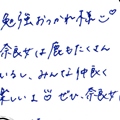 勉強おつかれ様
奈良女は鹿もたくさん
いるし、みんな仲良く
楽しいよ ぜひ、奈良女